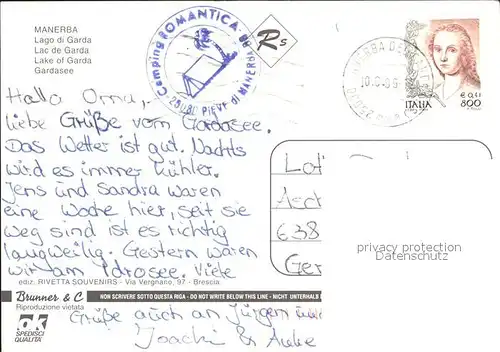 MANERBA
Lago di Garda
Lac de Garda
Lake of Garda
Gardasee
Camping ROMANTICA
25080 PIEVE di MANERBA BS
Rs
ITALIA
€ 0,41
800
Hallo Oma,
liebe Grüße vom Gardasee.
Das Wetter ist gut. Nachts
wird es immer kühler.
Jens und Sandra waren
eine Woche hier, seit sie
weg sind ist es richtig
langweilig. Gestern waren
wir am Idrosee. Viele
Grüße auch an Jürgen
Joachi & Anke
privacy protection
Datenschutz
ediz. RIVETTA SOUVENIRS - Via Vergnano, 97 - Brescia
Brunner & C
Riproduzione vietata
NON SCRIVERE SOTTO QUESTA RIGA - DO NOT WRITE BELOW THIS LINE - NICHT UNTERHALB
OK
SPEDISCI
QUALITA'